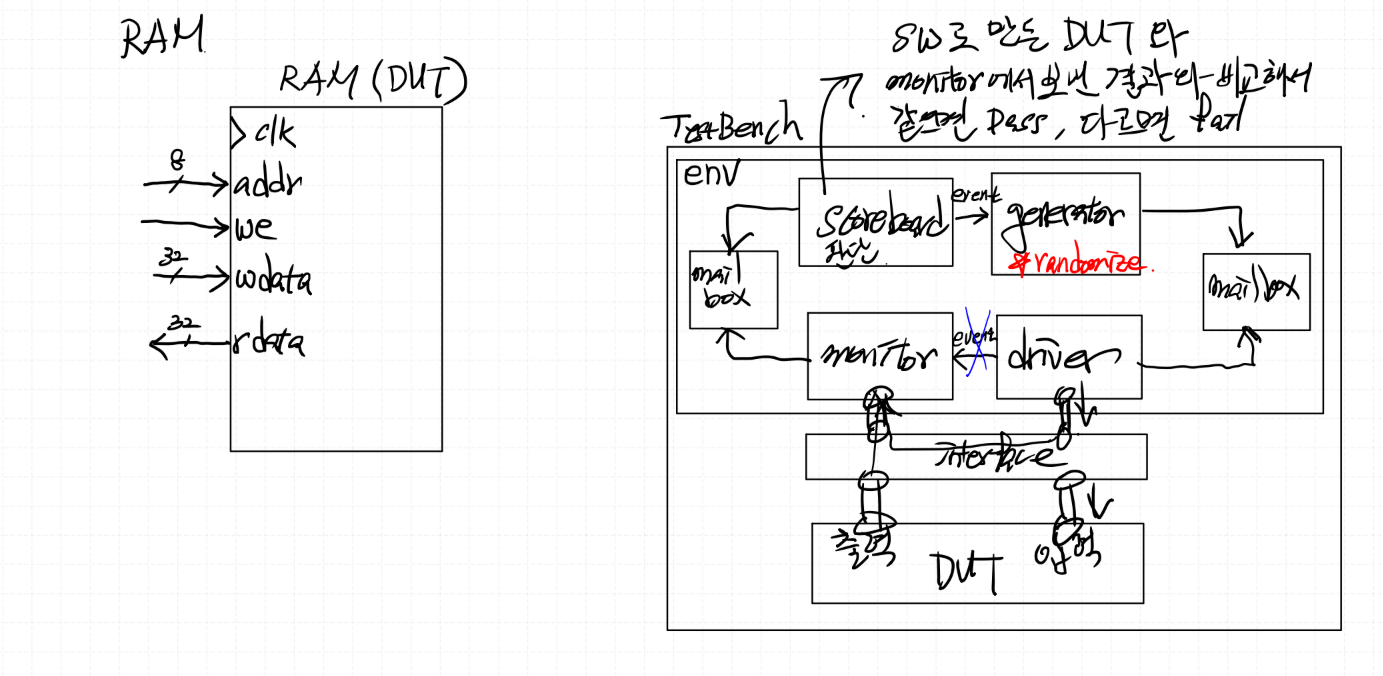 RAM
RAM (DUT)
clk
8
addr
we
32
wdata
32
rdata
SW로 만든 DUT 와
monitor에서 보낸 결과와 비교해서
같으면 Pass, 다르면 fail
TestBench
env
Scoreboard
판단
event
generator
*randomize.
mail
box
mailbox
monitor
event
driver
interface
출력
입력
DUT